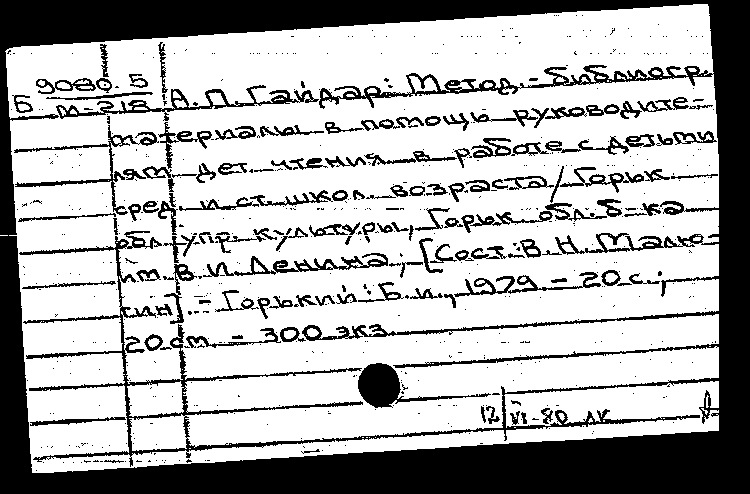 Б 9080.5
М-218
А.П. Гайдар: Метод.-библиогр.
материалы в помощь руководите-
лям дет. чтения в работе с детьми
сред. и ст. школ. возраста/Горьк.
обл. упр. культуры, Горьк. обл. б-ка
им. В.И. Ленина; [Сост.: В.Н. Малю-
гин]. - Горький: Б.и., 1979. - 20 с.;
20 см. - 300 экз.
12/VI-80 ЛК